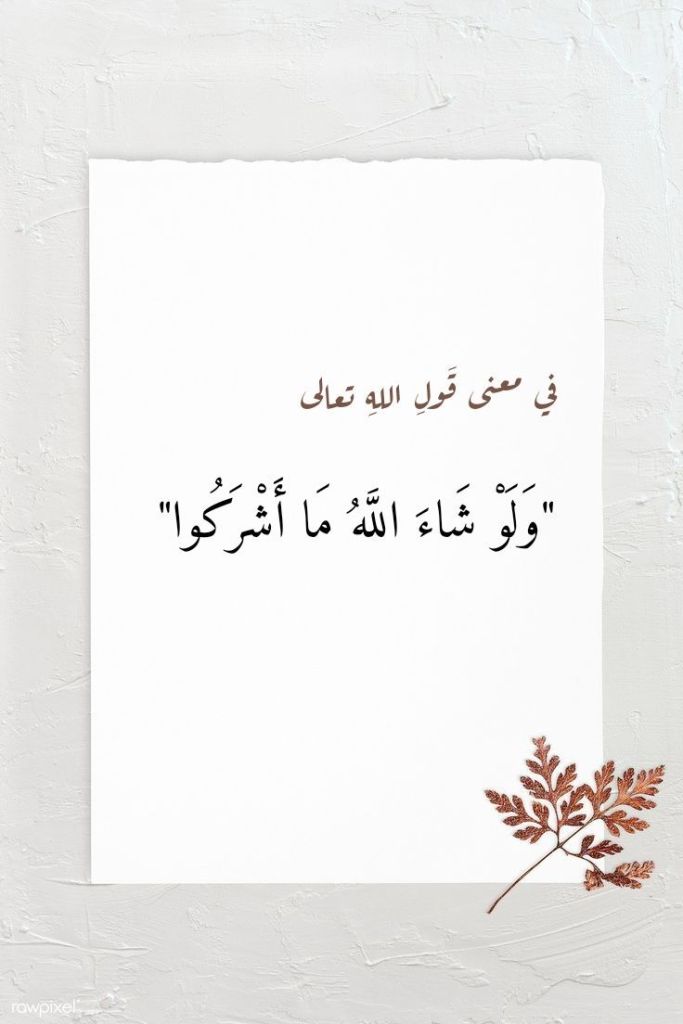 في معنى قَولِ اللهِ تعالى
"وَلَوْ شَاءَ اللَّهُ مَا أَشْرَكُوا"
rawpixel